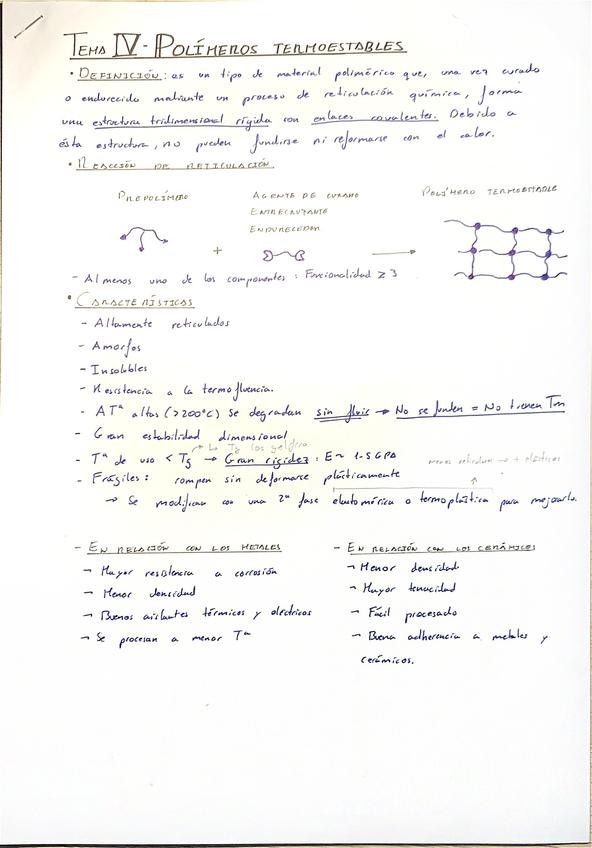 TEMA IV - POLÍMEROS TERMOESTABLES
• DEFINICIÓN: es un tipo de material polimérico que, una vez curado
o endurecido mediante un proceso de reticulación química, forma
una estructura tridimensional rígida con enlaces covalentes. Debido a
ésta estructura, no pueden fundirse ni reformarse con el calor.
• REACCIÓN DE RETICULACIÓN
PREPOLÍMERO
AGENTE DE CURADO
ENTRECRUZANTE
ENDURECEDOR
POLÍMERO TERMOESTABLE
+
→
- Al menos uno de los componentes: Funcionalidad ≥ 3
• CARACTERÍSTICAS
- Altamente reticulados
- Amorfos
- Insolubles
- Resistencia a la termofluencia.
- A Tª altas (>200ºC) se degradan sin fluir → No se funden = No tienen Tm
- Gran estabilidad dimensional
- Tª de uso < Tg → Gran rigidez: E ~ 1-5 GPa
- Frágiles: rompen sin deformarse plásticamente
menos → + plásticos
→ Se modifican con una 2ª fase elastomérica o termoplástica para mejorarlo.
- EN RELACIÓN CON LOS METALES
→ Mayor resistencia a corrosión
→ Menor densidad
→ Buenos aislantes térmicos y eléctricos
→ Se procesan a menor Tª
- EN RELACIÓN CON LOS CERÁMICOS
→ Menor densidad
→ Mayor tenacidad
→ Fácil procesado
→ Buena adherencia a metales y
cerámicos.